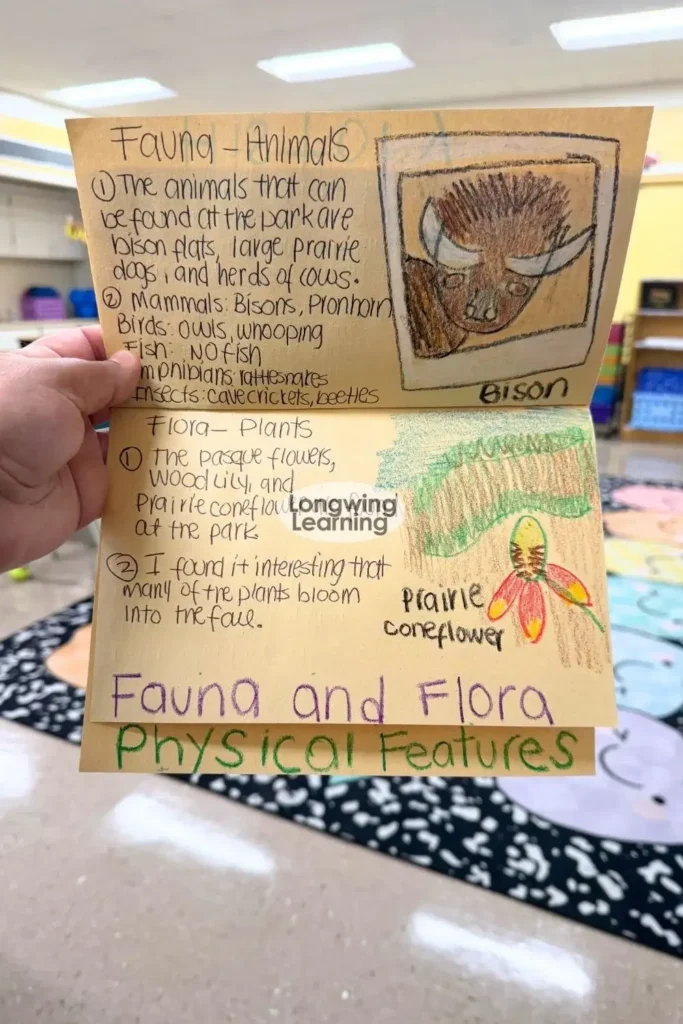 Fauna - Animals
① The animals that can
be found at the park are
bison flats, large prairie
dogs, and herds of cows.
② Mammals: Bisons, Pronhorn
Birds: owls, whooping
Fish: No fish
mphibians: rattlesnakes
Insects: cave crickets, beetles
Bison
Flora - Plants
① The pasque flowers,
wood lily, and
Prairie coneflow
at the park
② I found it interesting that
many of the plants bloom
into the fall.
Longwing
Learning
prairie
coneflower
Fauna and Flora
Physical Features